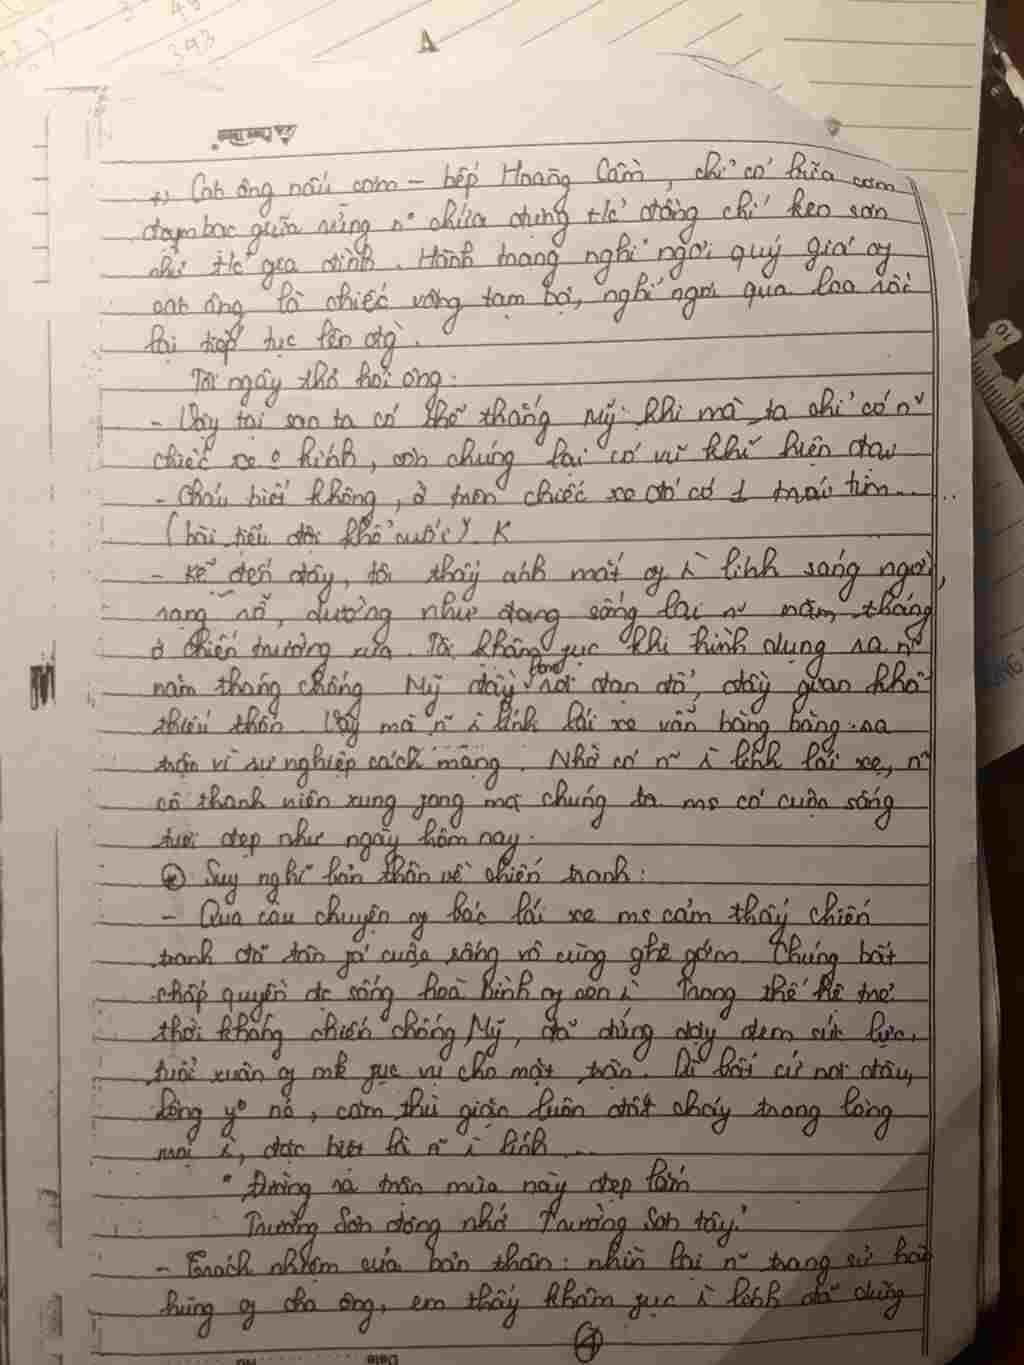 393
+) Các ông nấu cơm – bếp Hoàng Cầm, chỉ có bữa cơm
đạm bạc giữa rừng n~ chứa đựng t/c đồng chí keo sơn
như t/c gia đình. Hành trang nghỉ ngơi quý giá of
các ông là chiếc võng tạm bợ, nghỉ ngơi qua loa rồi
lại tiếp tục lên đg`.
Tôi ngây thơ hỏi ông:
- Vậy tại sao ta có thể thắng Mỹ khi mà ta chỉ có n~
chiếc xe 0 kính, còn chúng lại có vũ khí hiện đại
- Cháu biết không, ở trên chiếc xe đó có 1 trái tim...
(bài tiểu đội xe 0 kính). K
- Kể đến đây, tôi thấy ánh mắt of i lính sáng ngời,
rạng rỡ, dường như đang sống lại n~ năm tháng
ở chiến trường xưa. Tôi khâm phục khi hình dung ra n~
năm tháng chống Mỹ đầy bom rơi đạn đổ, đầy gian khổ
thiếu thốn. Vậy mà n~ i lính lái xe vẫn băng băng ra
trận vì sự nghiệp cách mạng. Nhờ có n~ i lính lái xe, n~
cô thanh niên xung fong mà chúng ta ms có cuộc sống
tươi đẹp như ngày hôm nay.
* Suy nghĩ bản thân về chiến tranh:
- Qua câu chuyện of bác lái xe ms cảm thấy chiến
tranh đã tàn fá cuộc sống vô cùng ghê gớm. Chúng bất
chấp quyền đc sống hoà bình of con i. Trong thế hệ trẻ
thời kháng chiến chống Mỹ, đã đứng dậy đem sức lực,
tuổi xuân of mk fục vụ cho mặt trận. Dì bất cứ nơi đâu,
lòng y0 nc, căm thù giặc luôn đốt cháy trong lòng
mọi i, đặc biệt là n~ i lính...
"Đường ra trận mùa này đẹp lắm
Trường Sơn đông nhớ Trường Sơn tây."
- Trách nhiệm của bản thân: nhìn lại n~ trang sử hào
hùng of cha ông, em thấy khâm fục i lính đã dũng
4
Date
No